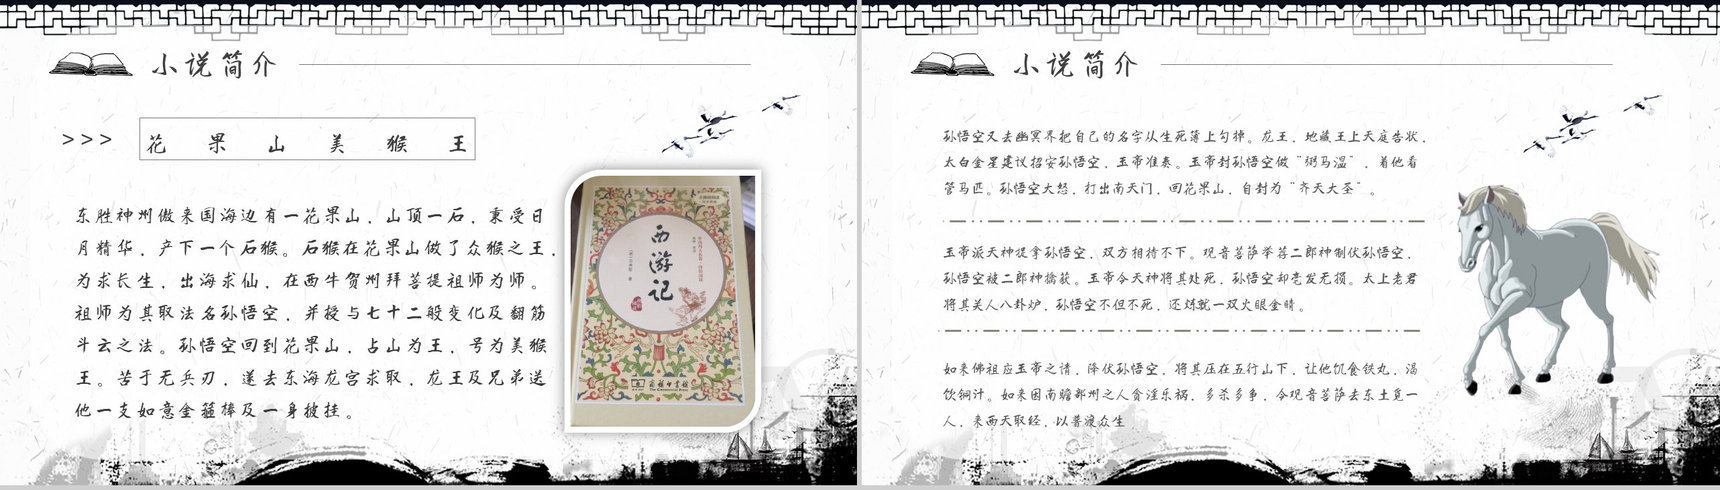 小说简介
>>> 花果山美猴王
东胜神州傲来国海边有一花果山，山顶一石，秉受日
月精华，产下一个石猴。石猴在花果山做了众猴之王，
为求长生，出海求仙，在西牛贺州拜菩提祖师为师。
祖师为其取法名孙悟空，并授与七十二般变化及翻筋
斗云之法。孙悟空回到花果山，占山为王，号为美猴
王。苦于无兵刃，遂去东海龙宫求取，龙王及兄弟送
他一支如意金箍棒及一身披挂。
西游记
商务印书馆
The Commercial Press
小说简介
孙悟空又去幽冥界把自己的名字从生死簿上勾掉。龙王，地藏王上天庭告状，
太白金星建议招安孙悟空，玉帝准奏。玉帝封孙悟空做“弼马温”，着他看
管马匹。孙悟空大怒，打出南天门，回花果山，自封为“齐天大圣”。
玉帝派天神捉拿孙悟空，双方相持不下。观音菩萨举荐二郎神制伏孙悟空，
孙悟空被二郎神擒获。玉帝令天神将其处死，孙悟空却毫发无损。太上老君
将其关入八卦炉，孙悟空不但不死，还炼就一双火眼金睛。
如来佛祖应玉帝之请，降伏孙悟空，将其压在五行山下，让他饥食铁丸，渴
饮铜汁。如来因南赡部州之人贪淫乐祸，多杀多争，令观音菩萨去东土觅一
人，来西天取经，以普渡众生